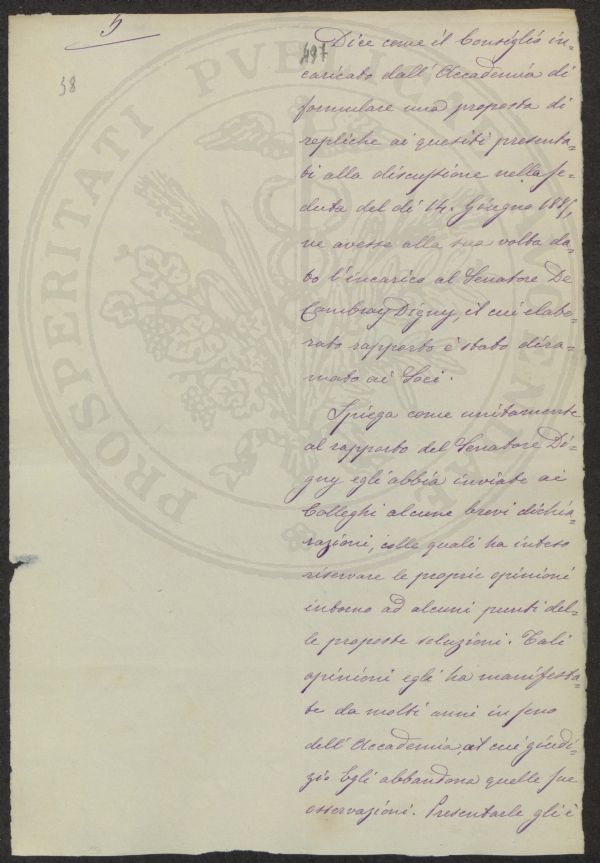 5
497
38
Dice come il Consiglio in=
caricato dall'Accademia di
formulare una proposta di
repliche ai quesiti presenta=
ti alla discussione nella se=
duta del dì 14. Giugno 1885,
ne avesse alla sua volta da=
to l'incarico al Senatore De
Cambray Digny, il cui elabo=
rato rapporto è stato dira=
mato ai Soci.
Spiega come unitamente
al rapporto del Senatore Di=
gny egli abbia inviate ai
Colleghi alcune brevi dichia=
razioni, colle quali ha inteso
riservare le proprie opinioni
intorno ad alcuni punti del=
le proposte soluzioni. Tali
opinioni egli ha manifesta=
te da molti anni in seno
dell'Accademia, al cui giudi=
zio Egli abbandona quelle sue
osservazioni. Presentarle gli è
PROSPERITATI PUBLICAE AUGENDAE